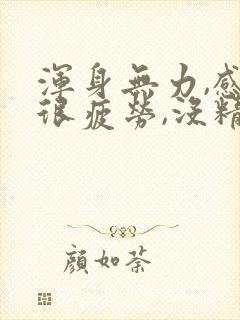 渾身無力,感
很疲勞,沒精
顏如荼